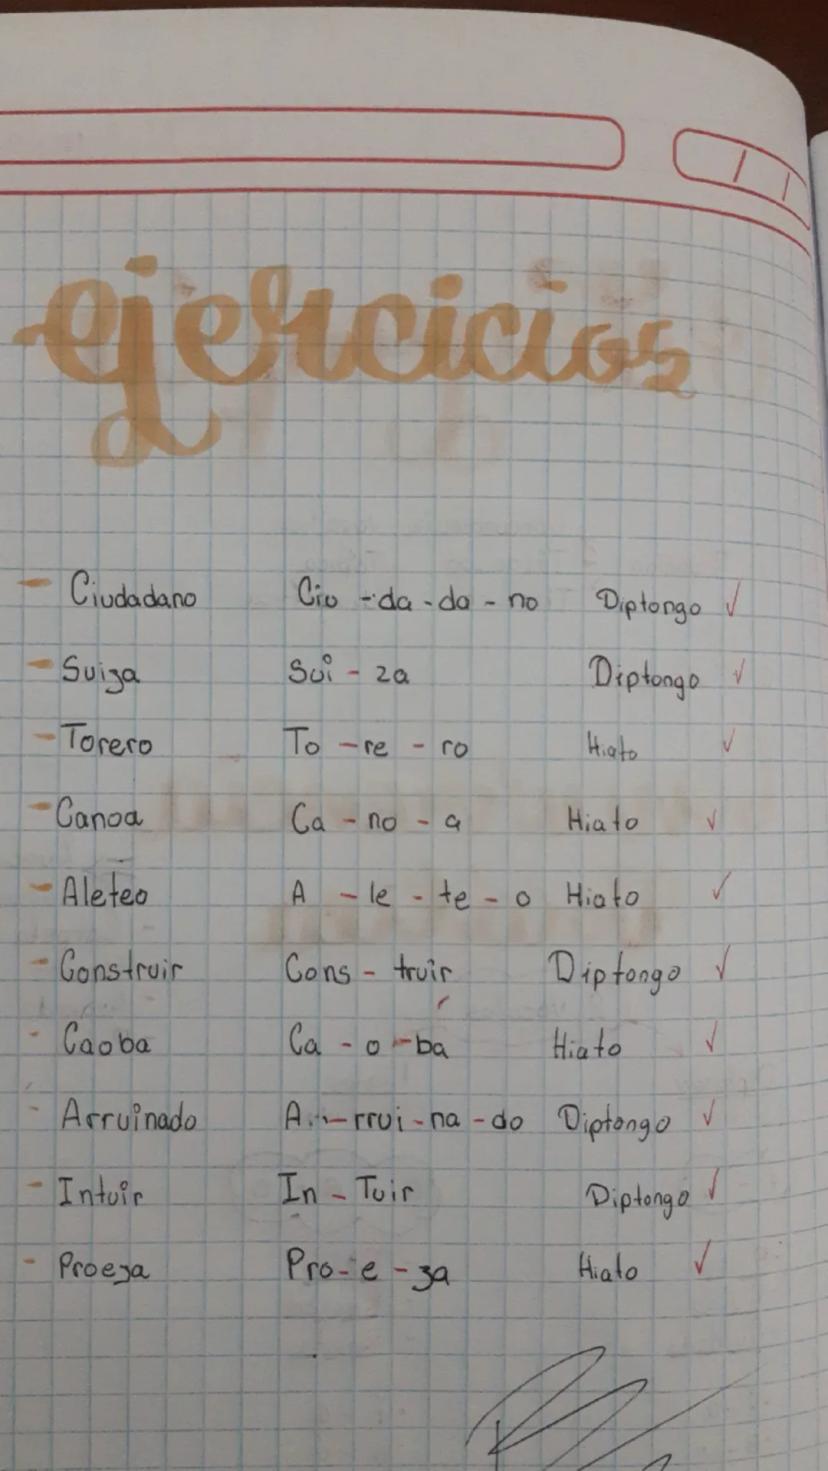 ejercicios
- Ciudadano Ciu - da - da - no Diptongo ✓
- Suiza Sui - za Diptongo ✓
- Torero To - re - ro Hiato ✓
- Canoa Ca - no - a Hiato ✓
- Aleteo A - le - te - o Hiato ✓
- Construir Cons - truir Diptongo ✓
- Caoba Ca - o - ba Hiato ✓
- Arruinado A - rrui - na - do Diptongo ✓
- Intuir In - Tuir Diptongo ✓
- Proeza Pro - e - za Hiato ✓